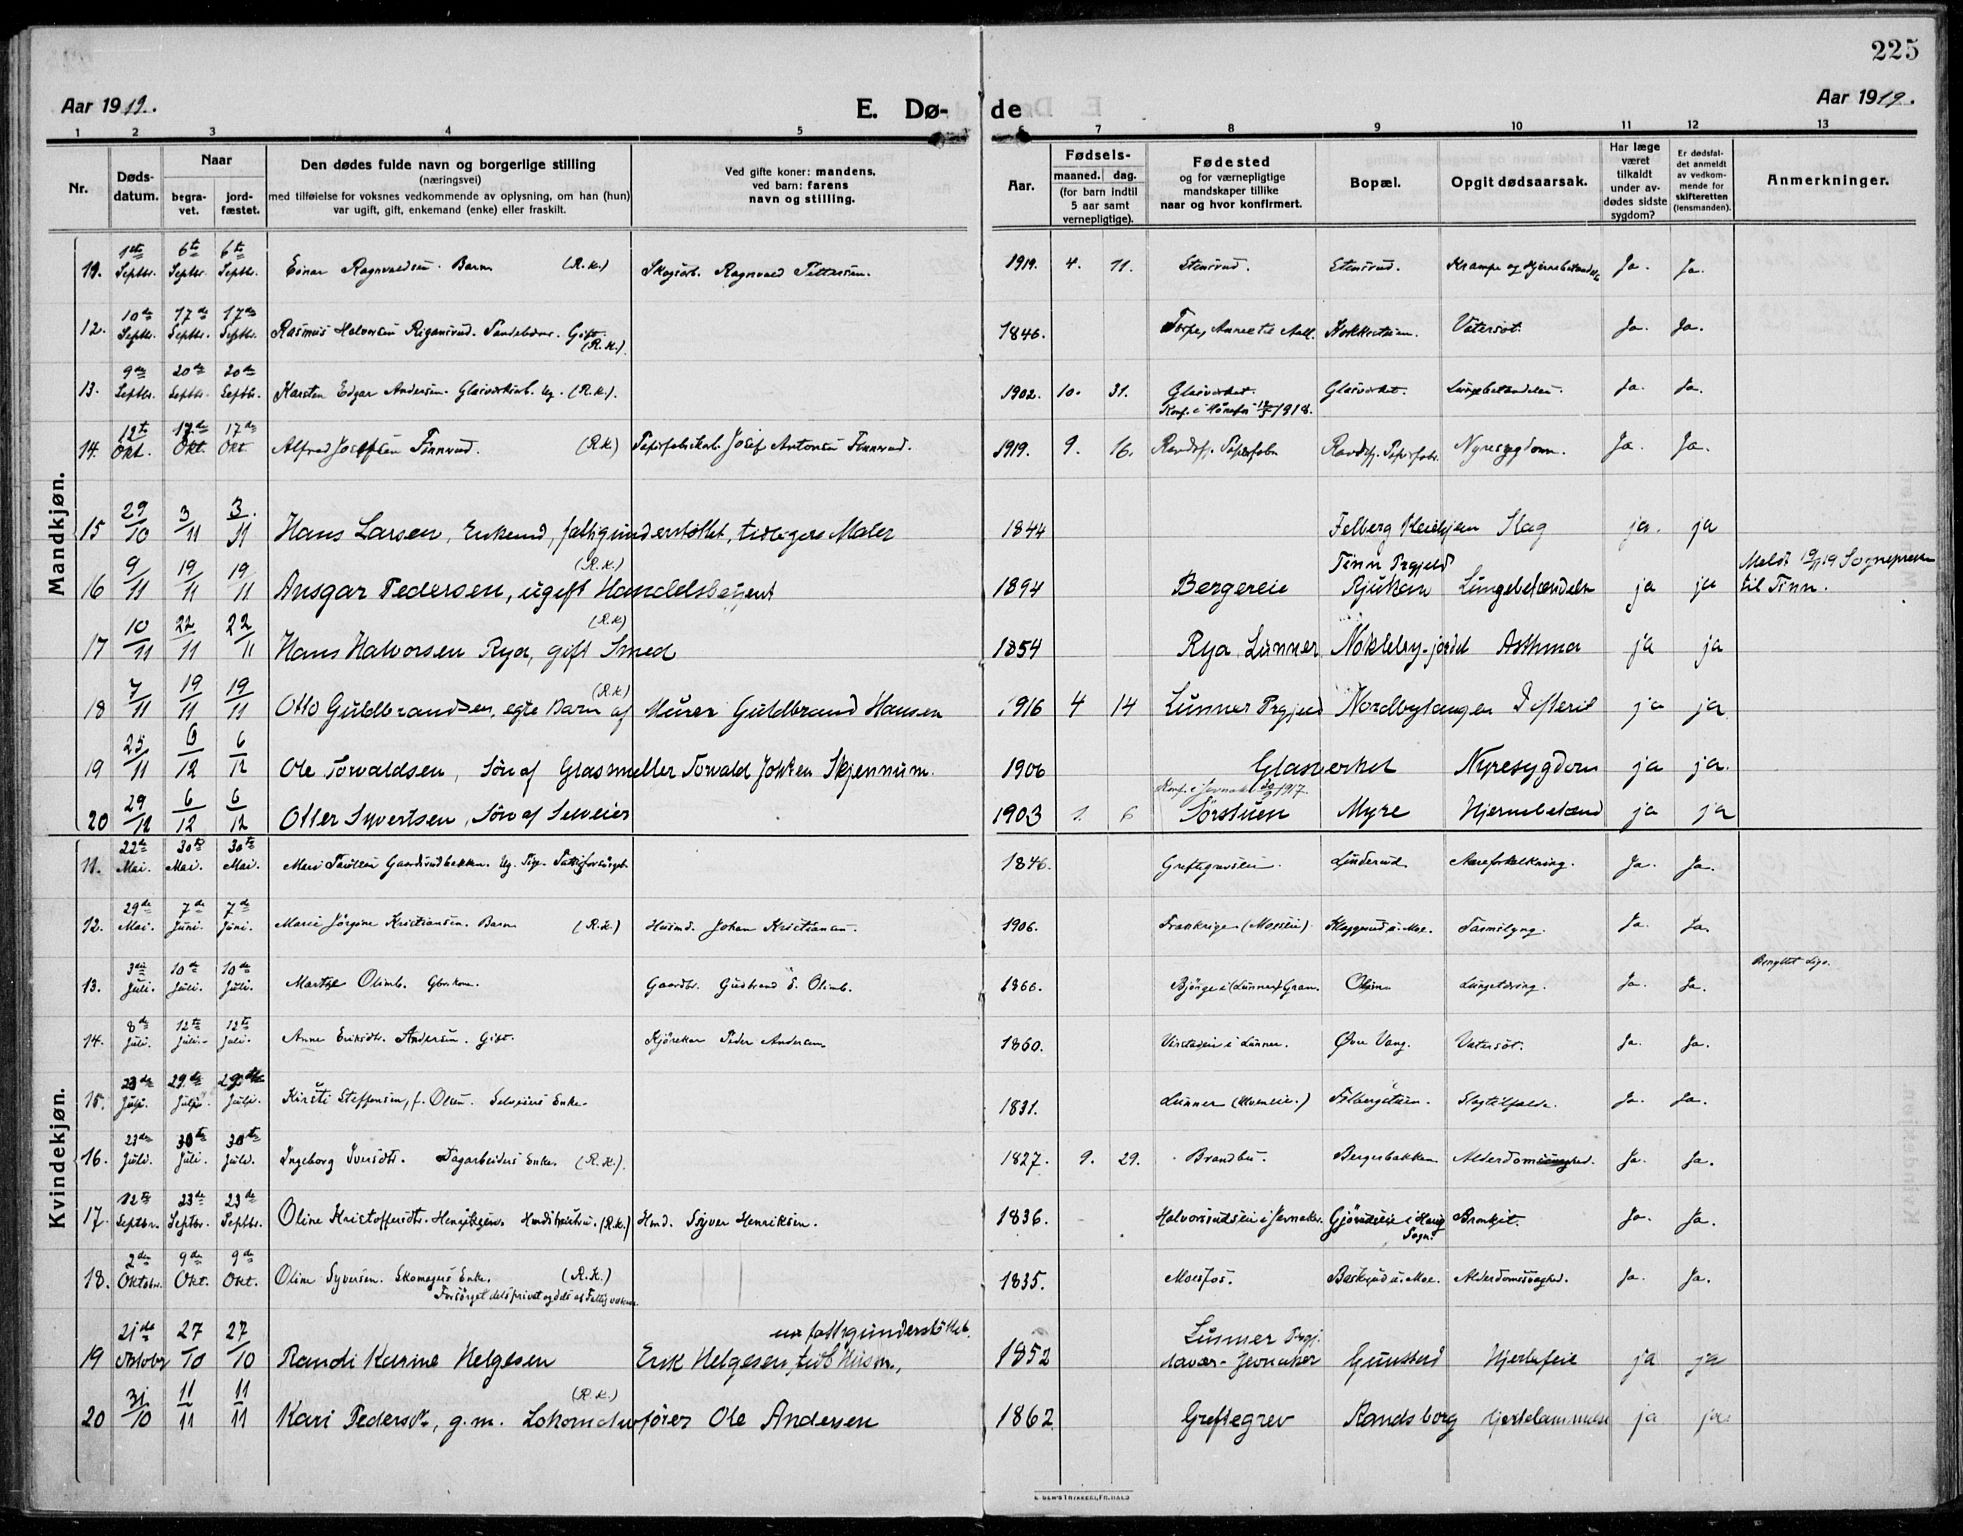 225
Aar 1919.
E. Dø-
de
Aar 1919.
1 2 3 4 5 6 7 8 9 10 11 12 13
Nr.
Døds-
datum.
Naar
begra-
vet.
jord-
fæstet.
Den dødes fulde navn og borgerlige stilling
(næringsvei)
med tilføielse for voksnes vedkommende av oplysning, om han (hun)
var ugift, gift, enkemand (enke) eller fraskilt.
Ved gifte koner: mandens,
ved barn: farens
navn og stilling.
Aar.
Fødsels-
maaned. dag.
(for barn indtil
5 aar samt
vernepligtige).
Fødested
og for værnepligtige
mandskaper tillike
naar og hvor konfirmert.
Bopæl.
Opgit dødsaarsak.
Har læge
været
tilkaldt
under av-
dødes sidste
sygdom?
Er dødsfal-
det anmeldt
av vedkom-
mende for
skifteretten
(lensmanden).
Anmerkninger.
Mandkjøn.
11. 1ste Septbr. 6te Septbr. 6te Septbr. Einar Ragnvaldsen. Barn (R.k.) Skogsarb. Ragnvald Pettersen. 1919. 4. 11. Stensrud. Stensrud. Krampe og Ja. Ja.
12. 10de Septbr. 17de Septbr. 17de Septbr. Rasmus Halvorsen Gift. (R.k.) 1846. Vatersot. Ja. Ja.
13. 9de Septbr. 20de Septbr. 20de Septbr. Karsten Edgar Andersen. Glasverksarb. Ug. (R.k.). 1902. 10. 31. Glasverket. Glasverket. Lungebetændelse. Ja. Ja.
Konf. i Hønefos 1918.
14. 12te Okt. 17de Okt. 17de Okt. Alfred Josefsen Finnrud. (R.k.) Papirfabrikarb. Josef Antonsen Finnrud. 1919. 9. 16. Randsfj. Papirfabr. Randsfj. Papirfabr. Nyresygdom. Ja. Ja.
15 29/10 3/11 3/11 Hans Larsen, Enkemd, fattigunderstøttet, tidligere Maler 1844 Felberg Slag ja. ja
16 9/11 19/11 19/11 Ansgar Pedersen, ugift Handelsbetjent (R.k.) 1894 Bergereie Tinn Prgjeld Rjukan Lungebetændelse ja ja Meldt 19 Sognepresten til Tinn.
17 10/11 22/11 22/11 Hans Halvorsen Rya, gift Smed (R.k.) 1854 Rya, Lunner Nøkleby-jordet Asthma ja ja
18 7/11 19/11 19/11 Otto Guldbrandsen, egte Barn af (R.k.) Murer Guldbrand Hansen 1916 4 14 Lunner Prgjeld Nordbytangen Difterit ja ja
19 25/11 6/12 6/12 Ole Torvaldsen, Søn af Glasmeller Torvald Skjennum. 1906 Glasverket Nyresygdom ja ja.
20 29/12 6/12 6/12 Otter Syvertsen, Søn af Selveier 1903 1. 6 Konf. i Jevnaker 1917. Sørstuen Myre Hjernebetænd ja ja
Kvindekjøn.
11. 22de Mai. 30te Mai. 30te Mai. Mari Paulsen Gaardsrudbakken. Ug. 1846. Greftegrevseie. Linderud. Aareforkalkning. Ja. Ja.
12. 29de Mai. 7de Juni. 7de Juni. Marie Jørgine Kristiansen. Barn (R.k.) Husmd. Johan Kristiansen. 1906. Frankrige (Moseie). Klæggerud u. Moe. Ja. Ja.
13. 3die Juli. 10de Juli. 10de Juli. Marthe Olimb. Gbr.kone. Gaardbr. Gudbrand E. Olimb. 1866. Bjørge i (Lunner) Gran. Olim. Lungetæring. Ja. Ja.
14. 8de Juli. 12te Juli. 12te Juli. Anne Eriksdtr. Andersen. Gift. Kjørekar Peder Andersen. 1860. i Lunner. Øvre Vang. Vatersot. Ja. Ja.
15. 23de Juli. 29de Juli. 29de Juli. Kirsti Steffensen, f. Olsen. Selveiers Enke. 1831. Lunner (Moeneie.) Felbergstuen. Slagtilfælde. Ja. Ja.
16. 23de Juli. 30te Juli. 30te Juli. Ingeborg Iversdtr. Dagarbeiders Enke. (R.k.). 1827. 9. 29. Brandbu. Bergerbakken. Alderdomssvaghed. Ja. Ja.
17. 12te Septbr. 23de Septbr. 23de Septbr. Oline Kristoffersdtr. Henriksen. (R.k.) Hmd. Syver Henriksen. 1836. Halvorsrudseie i Jevnaker. i Haug Sogn. Bronkit. Ja. Ja.
18. 2den Oktobr. 9de Okt. 9de Okt. Oline Syversen. Skomagers Enke. (R.k.) 1835. Moesfos. u. Moe. Alderdomssvaghed. Ja. Ja.
Forsørget dels privat og dels af Fattigvæsenet
19 21de Oktober 27/10 27/10 Randi Karine Helgesen Erik Helgesen, tidl. Husm., fattigunderstøttet. 1852 Lunner Prgj. Jevnaker Gunstad Hjertefeil ja ja
20 31/10 11/11 11/11 Kari Pedersdtr., g.m. Lokomotivfører Ole Andersen (R.k.) 1862 Greftegrev Randsborg Hjertelammelse ja ja